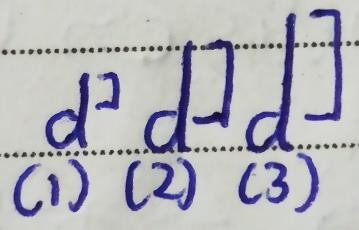 d˺ d˺ d˺
(1) (2) (3)